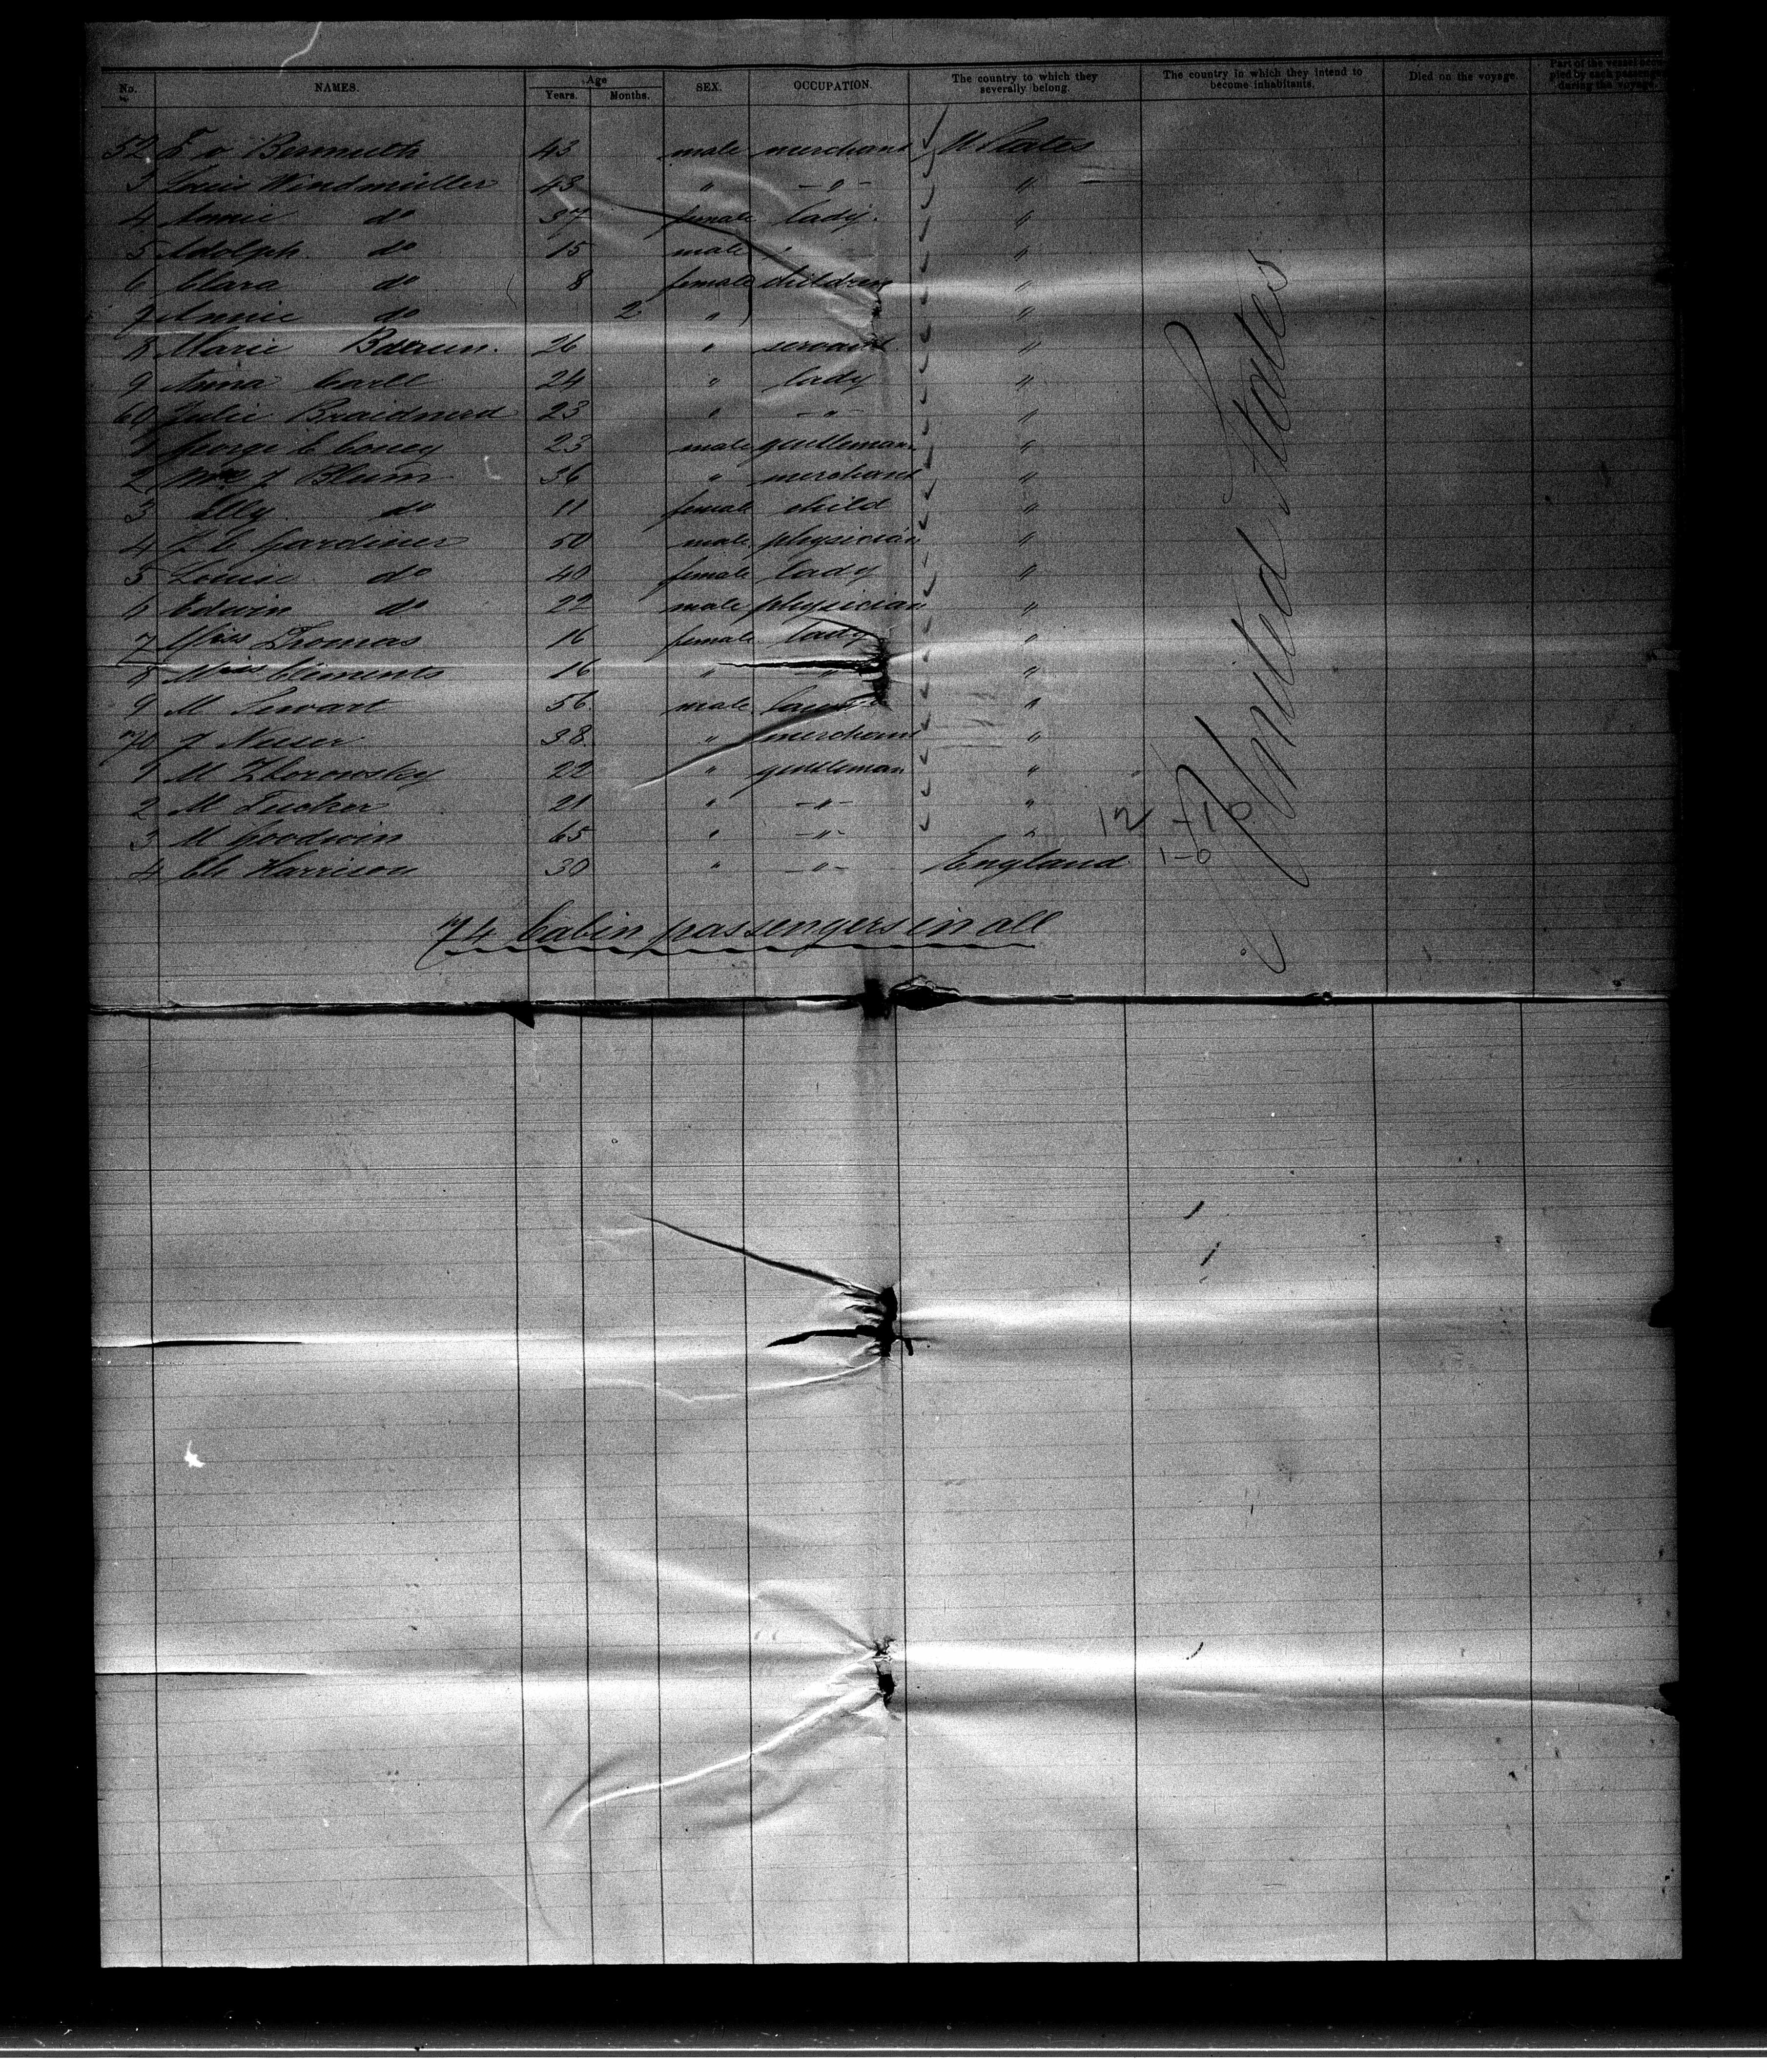 No. NAMES. Age Years. Months. SEX. OCCUPATION. The country to which they severally belong. The country in which they intend to become inhabitants. Died on the voyage. Part of the vessel occupied by each passenger during the voyage.
52 E v Bermuth 43 male merchant U States
3 Louis Windmüller 43 " -"- "
4 Annie do 37 female lady. "
5 Adolph do 15 male "
6 Clara do 8 female children "
7 Annie do 2 " "
8 Marie Braun. 26 " servant "
9 Anna Carll 24 " lady "
60 Julie Braidmerd 23 " -"- "
1 George E Coney 23 male gentleman "
2 J Blum 36 " merchant "
3 Elly do 11 female child "
4 Gardiner 50 male physician "
5 Louise do 40 female lady "
6 Edwin do 22 male physician "
7 Miss Thomas 16 female lady "
8 Miss Clements 16 " " "
9 M 56 male "
70 J Neuer 38 " merchant "
1 M Zborowsky 22 " gentleman "
2 M Tucker 21 " -"- "
3 M Goodwin 65 " -"- "
4 Ch Harrison 30 " -"- England
United States
74 Cabin passengers in all